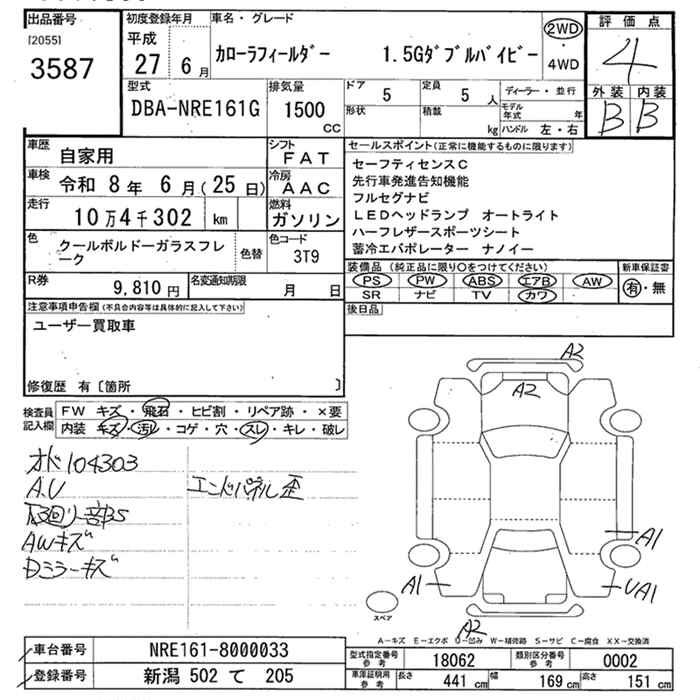 出品番号
[2055]
3587
初度登録年月
平成
27 6月
車名・グレード
カローラフィールダー 1.5Gダブルバイビー
2WD
・
4WD
評価点
4
外装 内装
B B
型式
DBA-NRE161G
排気量
1500
CC
ドア
5
定員
5 人
形状
積載
kg
ディーラー・並行
モデル年式 年
ハンドル 左・右
車歴
自家用
シフト
FAT
車検
令和 8年 6月(25日)
冷房
AAC
走行
10万4千302 km
燃料
ガソリン
色
クールボルドーガラスフレ
ーク
色替
色コード
3T9
R券
9,810円
名変通知期限
月 日
セールスポイント(正常に機能するものに限ります)
セーフティセンスC
先行車発進告知機能
フルセグナビ
LEDヘッドランプ オートライト
ハーフレザースポーツシート
蓄冷エバポレーター ナノイー
装備品(純正品に限り○をつけてください)
PS PW ABS エアB AW
SR ナビ TV カワ
新車保証書
有・無
後日品
注意事項申告欄(不具合内容等は具体的に記入して下さい)
ユーザー買取車
修復歴 有〔箇所 〕
検査員
記入欄
FW キズ・飛石・ヒビ割・リペア跡・×要
内装 キズ・汚レ・コゲ・穴・スレ・キレ・破レ
オド104303
A.U
エンドパネル歪
下回り一部S
AWキズ
Dミラーキズ
A2
A2
A1
A1
UA1
A2
スペア
A-キズ E-エクボ U-凹み W-補修跡 S-サビ C-腐食 XX-交換済
車台番号
NRE161-8000033
登録番号
新潟 502 て 205
型式指定番号
参考
18062
類別区分番号
参考
0002
車庫証明用
参考
長さ 441 cm
幅 169 cm
高さ 151 cm